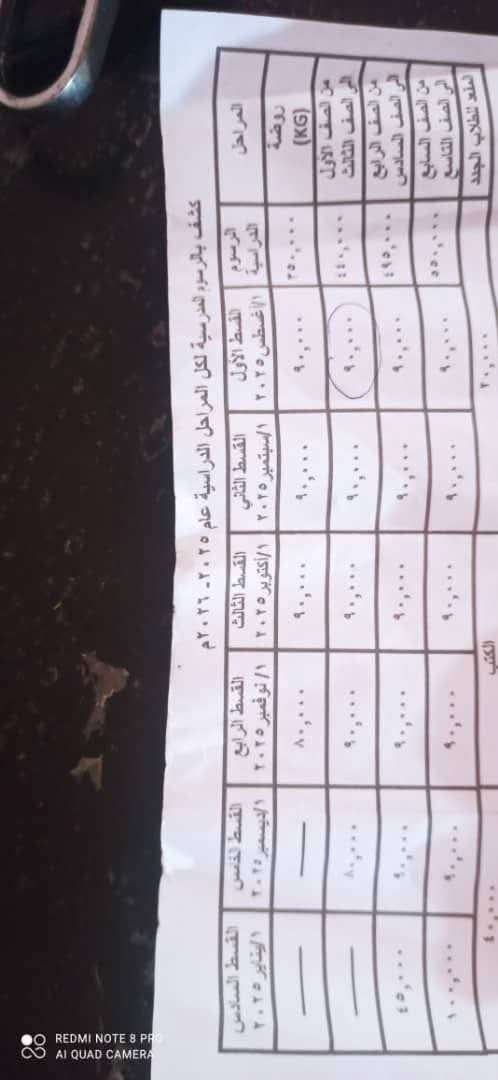 كشف بالرسوم المدرسية لكل المراحل الدراسية عام ٢٠٢٥-٢٠٢٦م
المراحل الرسوم القسط الأول القسط الثاني القسط الثالث القسط الرابع القسط الخامس القسط السادس
الدراسية ١/أغسطس٢٠٢٥ ١/سبتمبر٢٠٢٥ ١/أكتوبر٢٠٢٥ ١/نوفمبر٢٠٢٥ ١/ديسمبر٢٠٢٥ ١/يناير٢٠٢٥
روضة ٣٥٠,٠٠٠ ٩٠,٠٠٠ ٩٠,٠٠٠ ٩٠,٠٠٠ ٨٠,٠٠٠
(KG)
من الصف الأول ٤٤٠,٠٠٠ ٩٠,٠٠٠ ٩٠,٠٠٠ ٩٠,٠٠٠ ٩٠,٠٠٠ ٨٠,٠٠٠
الى الصف الثالث
من الصف الرابع ٤٩٥,٠٠٠ ٩٠,٠٠٠ ٩٠,٠٠٠ ٩٠,٠٠٠ ٩٠,٠٠٠ ٩٠,٠٠٠ ٤٥,٠٠٠
الى الصف السادس
من الصف السابع ٥٥٠,٠٠٠ ٩٠,٠٠٠ ٩٠,٠٠٠ ٩٠,٠٠٠ ٩٠,٠٠٠ ٩٠,٠٠٠ ١٠٠,٠٠٠
الى الصف التاسع
المقعد للطلاب الجدد ٢٠,٠٠٠ الكتب ٤٠,٠٠٠
REDMI NOTE 8 PRO
AI QUAD CAMERA